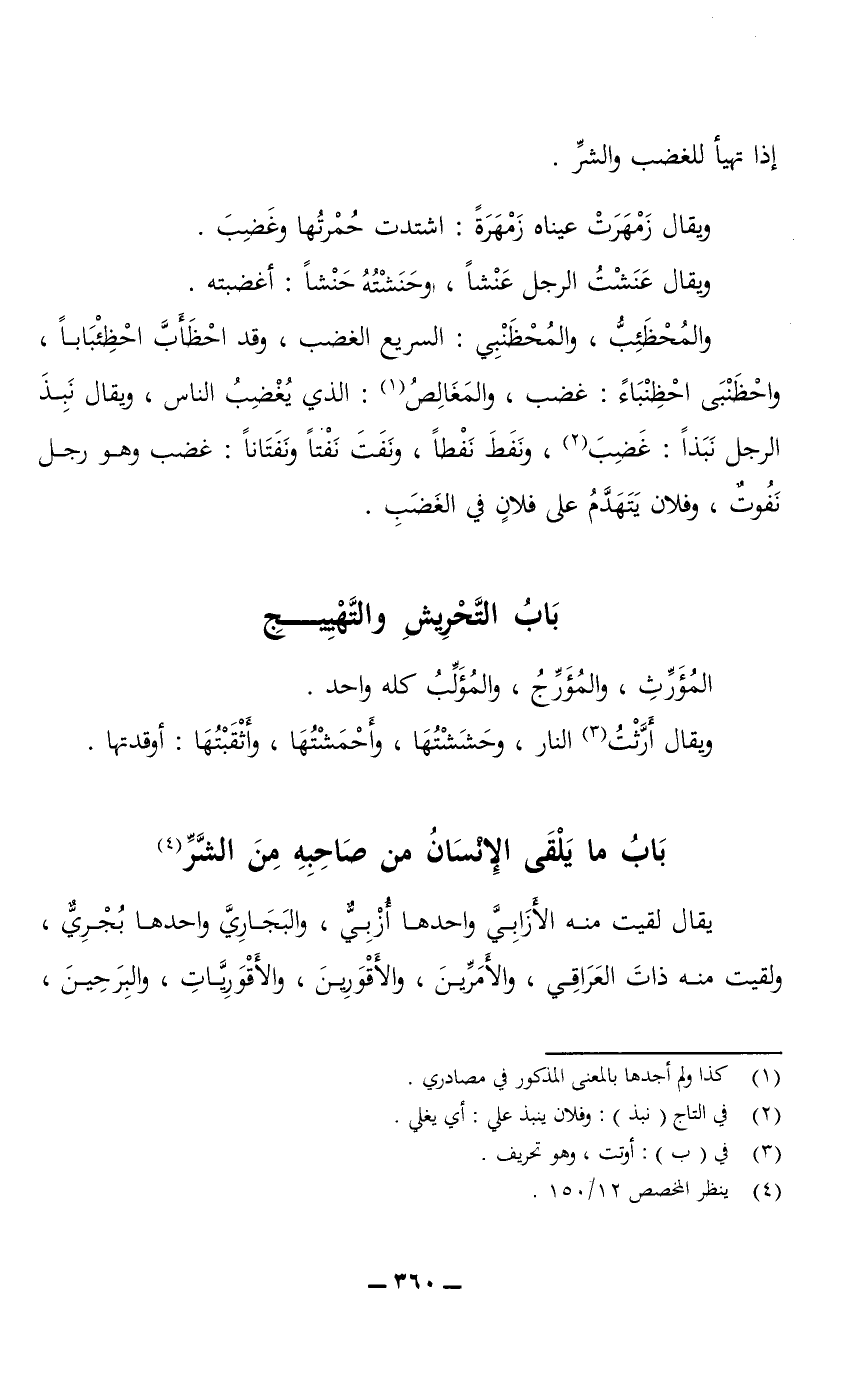 إذا تهيأ للغضب والشرِّ .
ويقال زَمْهَرَتْ عيناه زَمْهَرَةً : اشتدت حُمْرتُها وغَضِبَ .
ويقال عَنَشْتُ الرجل عَنْشاً ، وحَنَشْتُهُ حَنْشاً : أغضبته .
والمُحْظَئِبُّ ، والمُحْظَنْبِي : السريع الغضب ، وقد احْظَأَبَّ احْظِئْبَاباً ،
واحْظَنْبَى احْظِنْبَاءً : غضب ، والمَغَالِصُ(١) : الذي يُغْضِبُ الناس ، ويقال نَبِذَ
الرجل نَبَذاً : غَضِبَ(٢) ، ونَفَطَ نَفْطاً ، ونَفَتَ نَفْتاً ونَفَتَاناً : غضب وهو رجل
نَفُوتٌ ، وفلان يَتَهَدَّمُ على فلانٍ في الغَضَبِ .
بَابُ التَّحْرِيشِ والتَّهْيِيجِ
المُؤَرِّثِ ، والمُؤَرِّجُ ، والمُؤَلِّبُ كله واحد .
ويقال أَرَّثْتُ(٣) النار ، وحَشَشْتُهَا ، وأَحْمَشْتُهَا ، وأَثْقَبْتُهَا : أوقدتها .
بَابُ ما يَلْقَى الإِنْسَانُ من صَاحِبِهِ مِنَ الشَّرِّ(٤)
يقال لقيت منه الأَزَابِيَّ واحدها أُزْبِيٌّ ، والبَجَارِيَّ واحدها بُجْرِيٌّ ،
ولقيت منه ذاتَ العَرَاقِي ، والأَمَرِّينَ ، والأَقْوَرِينَ ، والأَقْوَرِيَّاتِ ، والبِرَحِينَ ،
(١) كذا ولم أجدها بالمعنى المذكور في مصادري .
(٢) في التاج ( نبذ ) : وفلان ينبذ علي : أي يغلي .
(٣) في ( ب ) : أوتت ، وهو تحريف .
(٤) ينظر المخصص ١٥٠/١٢ .
ــ ٣٦٠ ــ